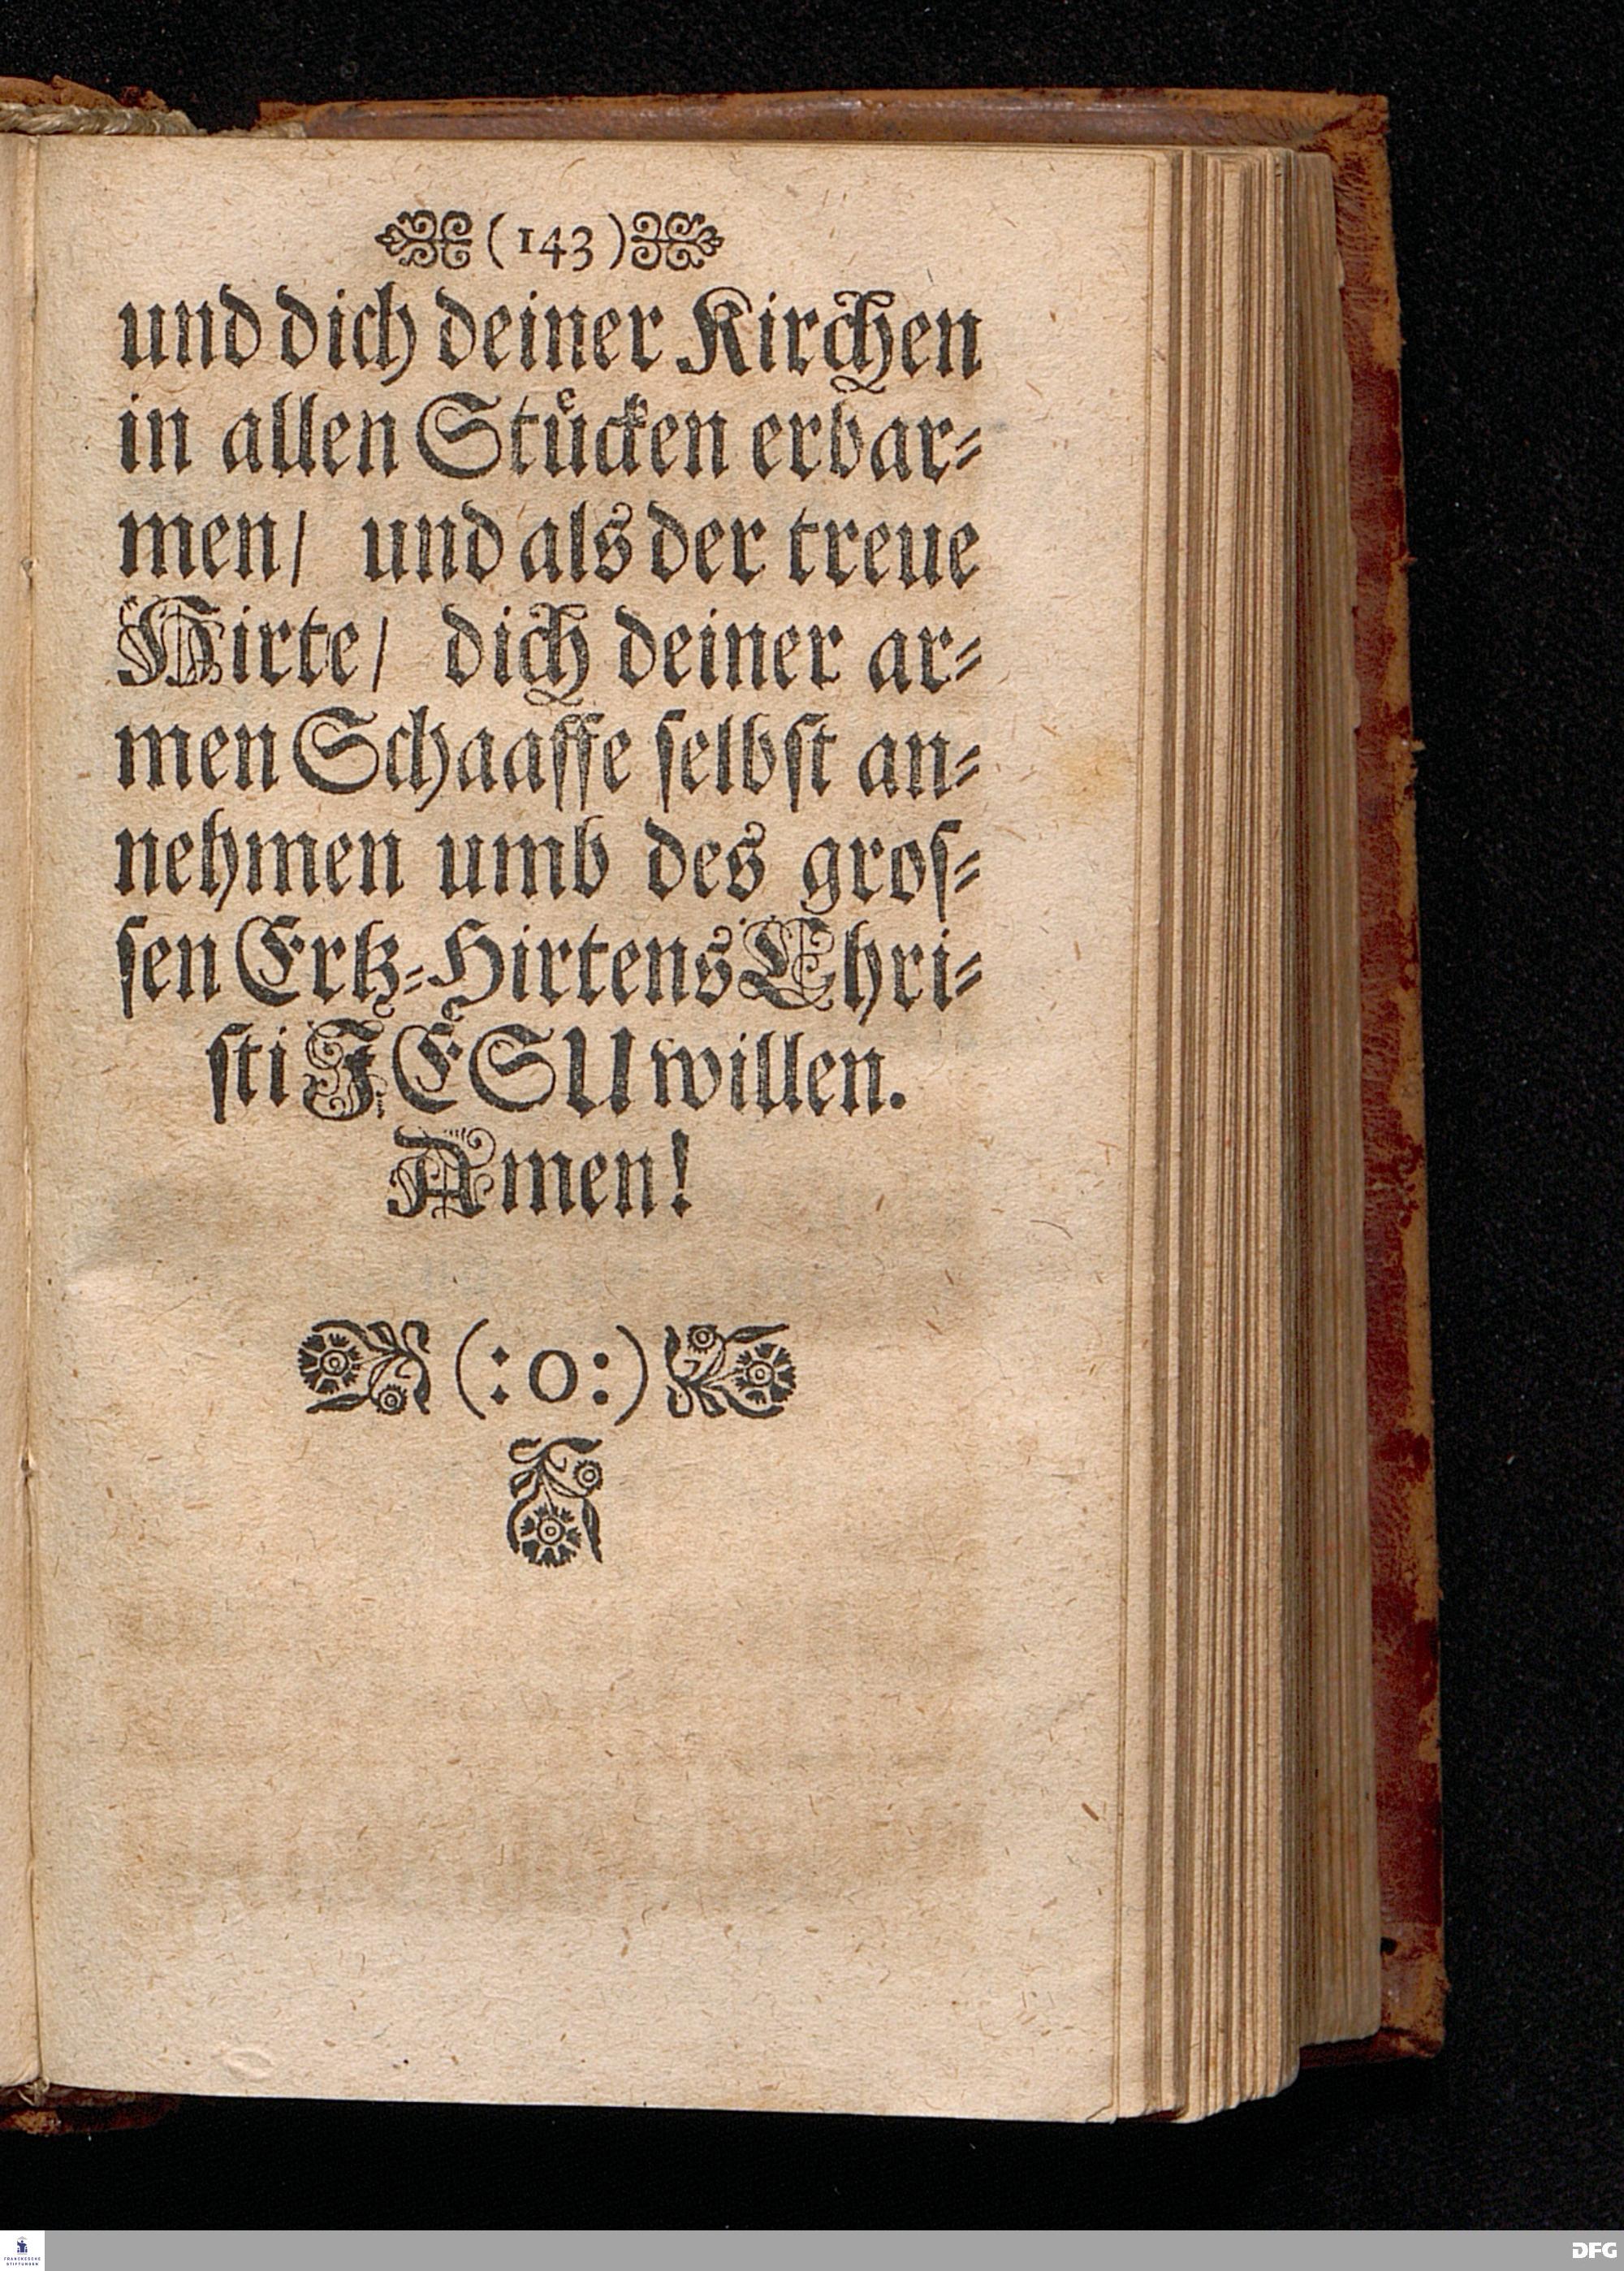 (143)
und dich deiner Kirchen
in allen Stuͤcken erbar⸗
men/ und als der treue
Hirte/ dich deiner ar⸗
men Schaaffe ſelbſt an⸗
nehmen umb des groſ⸗
ſen Ertz⸗Hirtens Chri⸗
ſti JESU willen.
Amen!
(:o:)
FRANCKESCHE
STIFTUNGEN
DFG